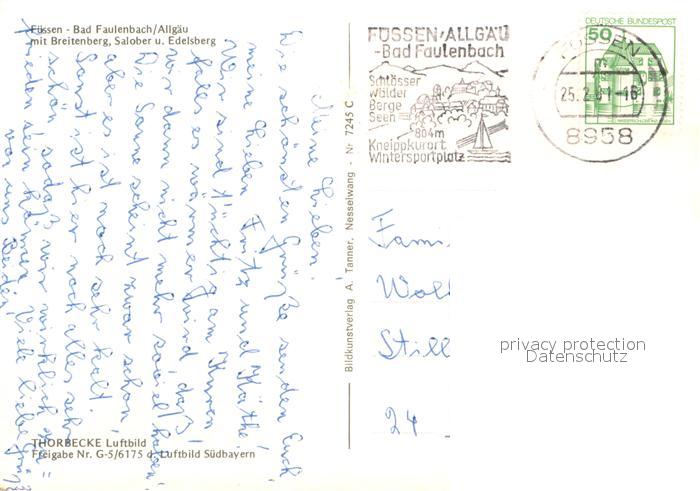 Füssen - Bad Faulenbach/Allgäu
mit Breitenberg, Salober u. Edelsberg
Meine Lieben!
Die schönsten Grüße senden Euch
meine Lieben Fritz und Käthe!
Wir sind tüchtig am Kuren
falls es wärmer wird, daß
wir dann nicht mehr soviel haben.
Die Sonne scheint zwar schon,
aber es ist noch sehr kalt.
Sonst ist hier noch alles sehr
schön sodaß wir wirklich zu=
frieden sein können. Viele liebe Grüße
von uns Beiden
THORBECKE Luftbild
Freigabe Nr. G-5/6175 d. Luftbild Südbayern
Bildkunstverlag A. Tanner, Nesselwang - Nr. 7245 C
FÜSSEN/ALLGÄU
-Bad Faulenbach
Schlösser
Wälder
Berge
Seen
804m
Kneippkurort
Wintersportplatz
DEUTSCHE BUNDESPOST
50
FÜSSEN
25.2.81-16
8958
Fami
Wol
Still
24
privacy protection
Datenschutz